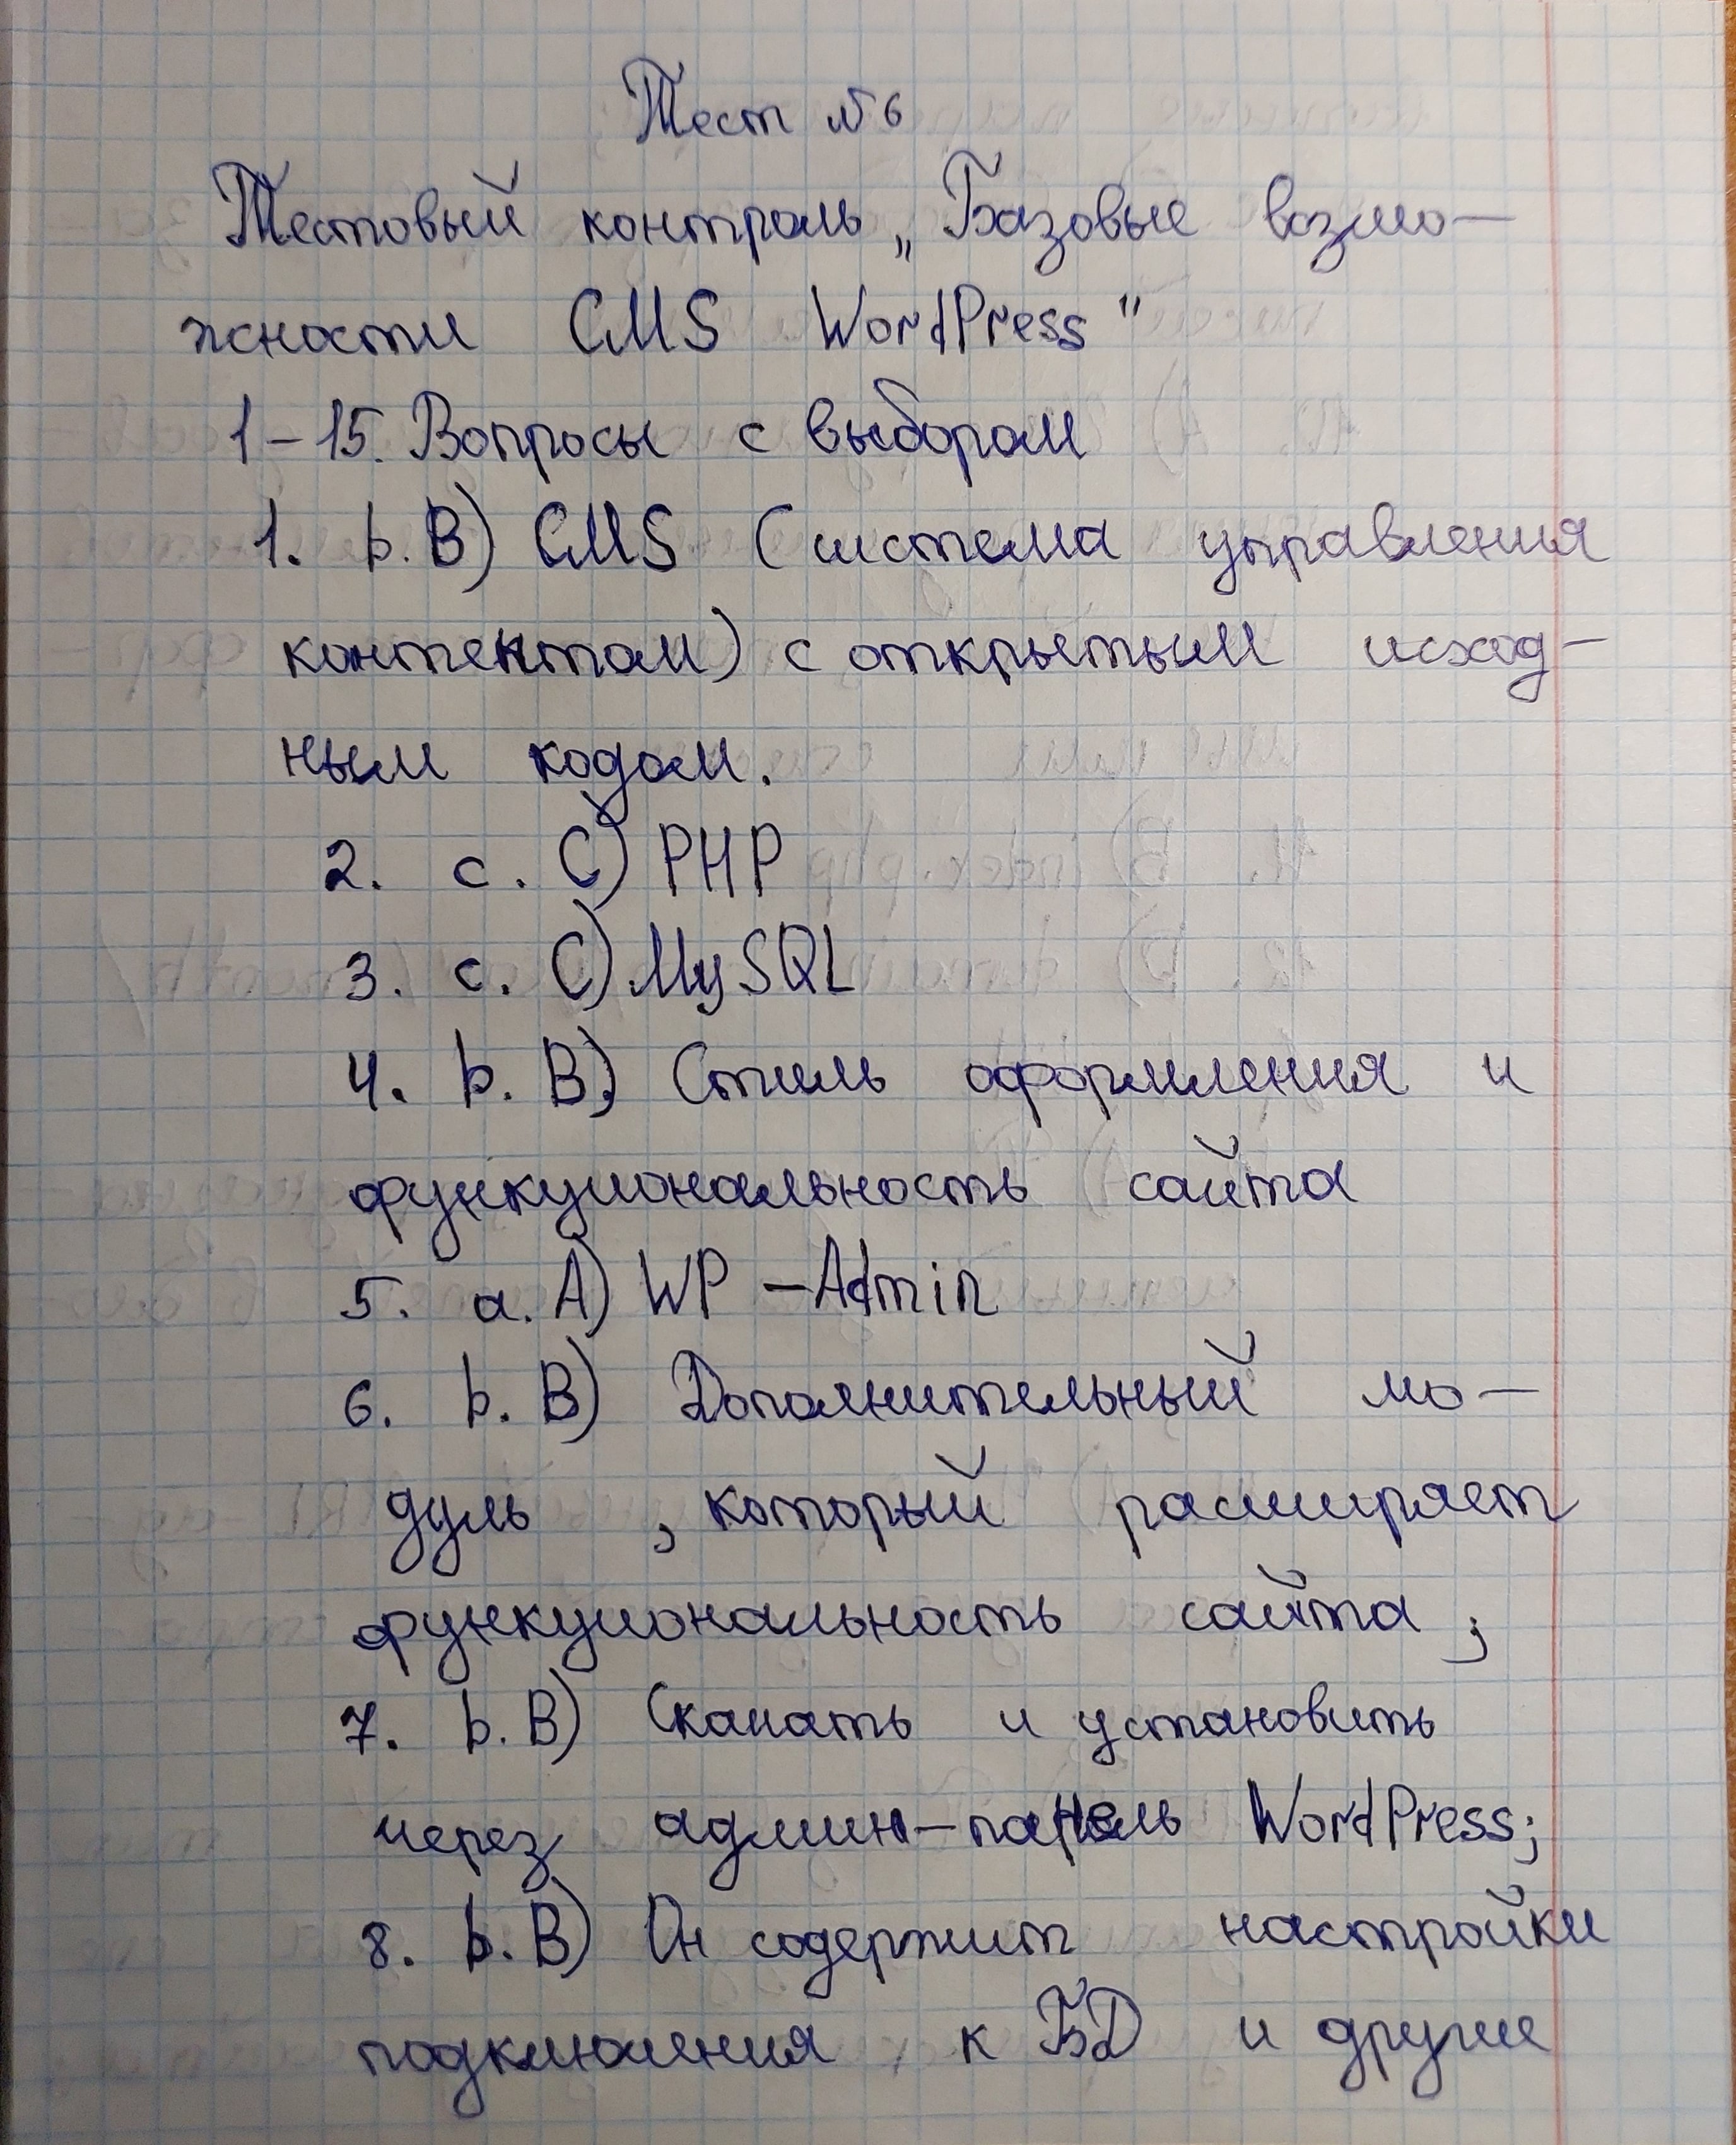 Тест №6
Тестовый контроль „Базовые возмо-
жности CMS WordPress"
1-15. Вопросы с выбором
1. b. B) CMS (система управления
контентом) с открытым исход-
ным кодом.
2. c. C) PHP
3. c. C) MySQL
4. b. B) Стиль оформления и
функциональность сайта
5. a. A) WP-Admin
6. b. B) Дополнительный мо-
дуль, который расширяет
функциональность сайта;
7. b. B) Скачать и установить
через админ-панель WordPress;
8. b. B) Он содержит настройки
подключения к БД и другие